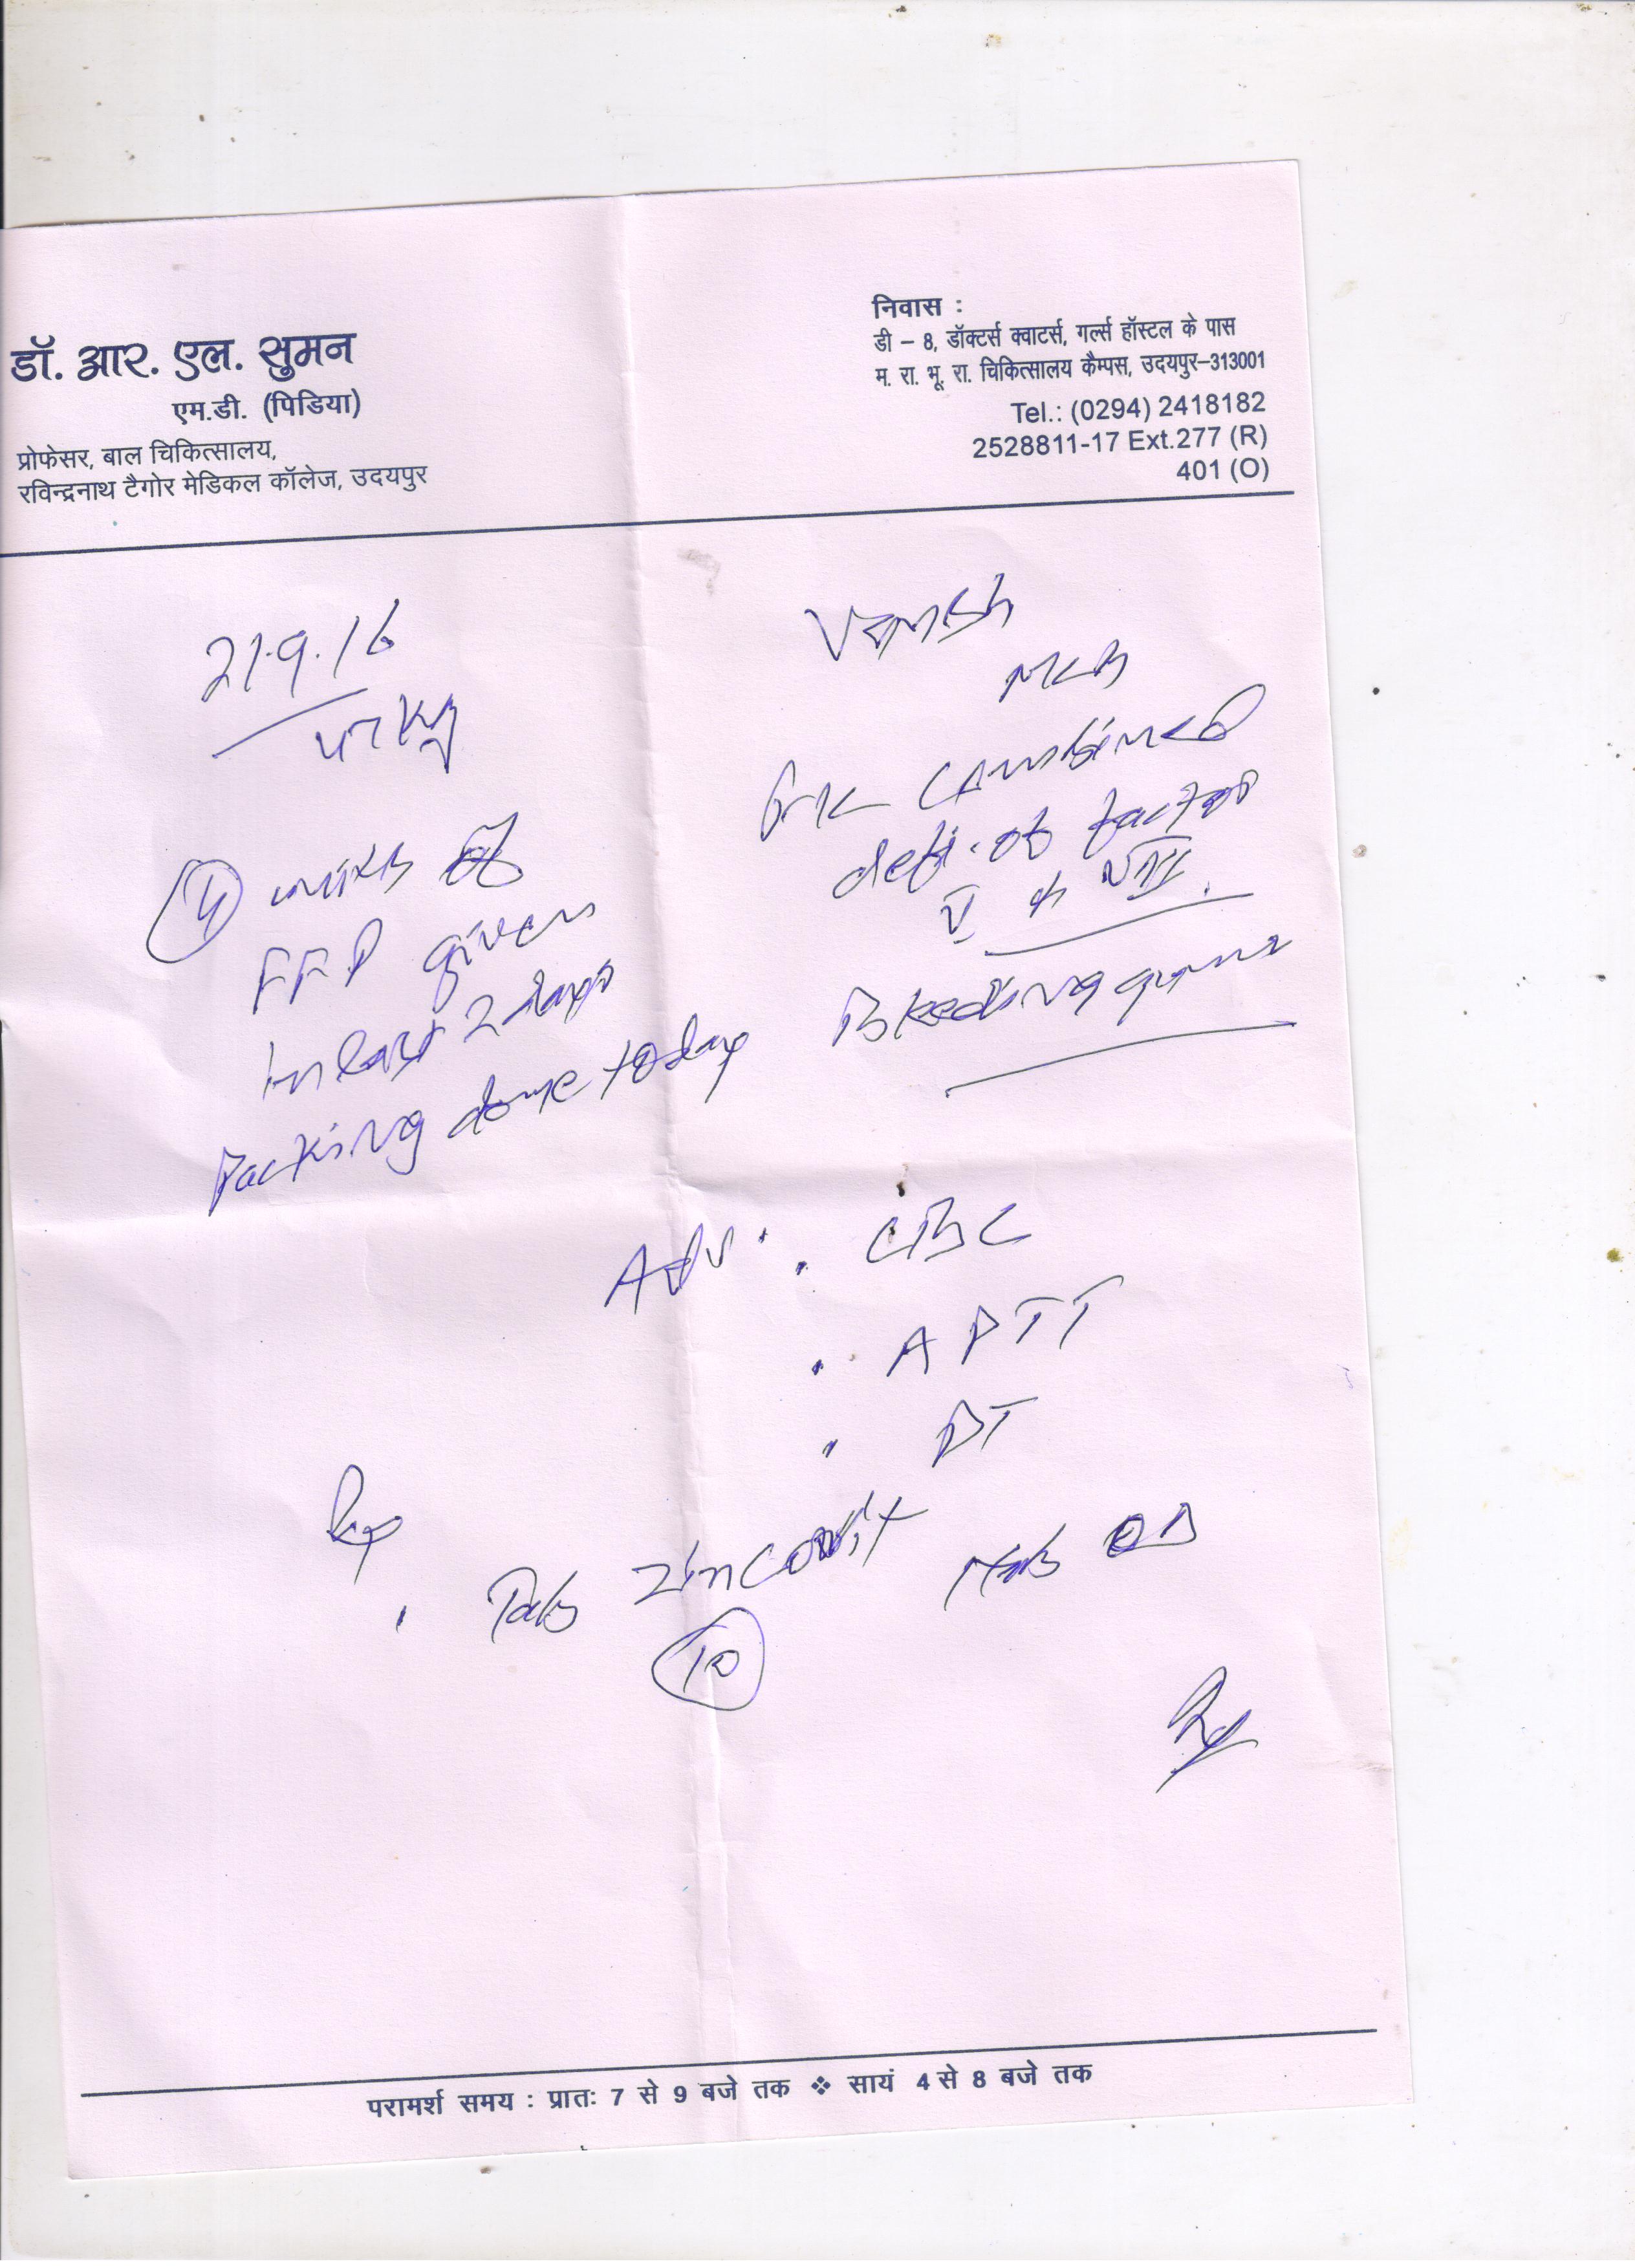 डॉ. आर. एल. सुमन
एम.डी. (पिडिया)
प्रोफेसर, बाल चिकित्सालय,
रविन्द्रनाथ टैगोर मेडिकल कॉलेज, उदयपुर
निवास :
डी – 8, डॉक्टर्स क्वाटर्स, गर्ल्स हॉस्टल के पास
म. रा. भू. रा. चिकित्सालय कैम्पस, उदयपुर–313001
Tel.: (0294) 2418182
2528811-17 Ext.277 (R)
401 (O)
21.9.16
Vansh
combined
defi. of factor
V VIII.
Bleeding gums
4 units of
FFP given
in last 2 days
Packing done today
Adv. . CBC
. APTT
. PT
. Tab Zincovit 1tab OD
10
परामर्श समय : प्रातः 7 से 9 बजे तक ❖ सायं 4 से 8 बजे तक